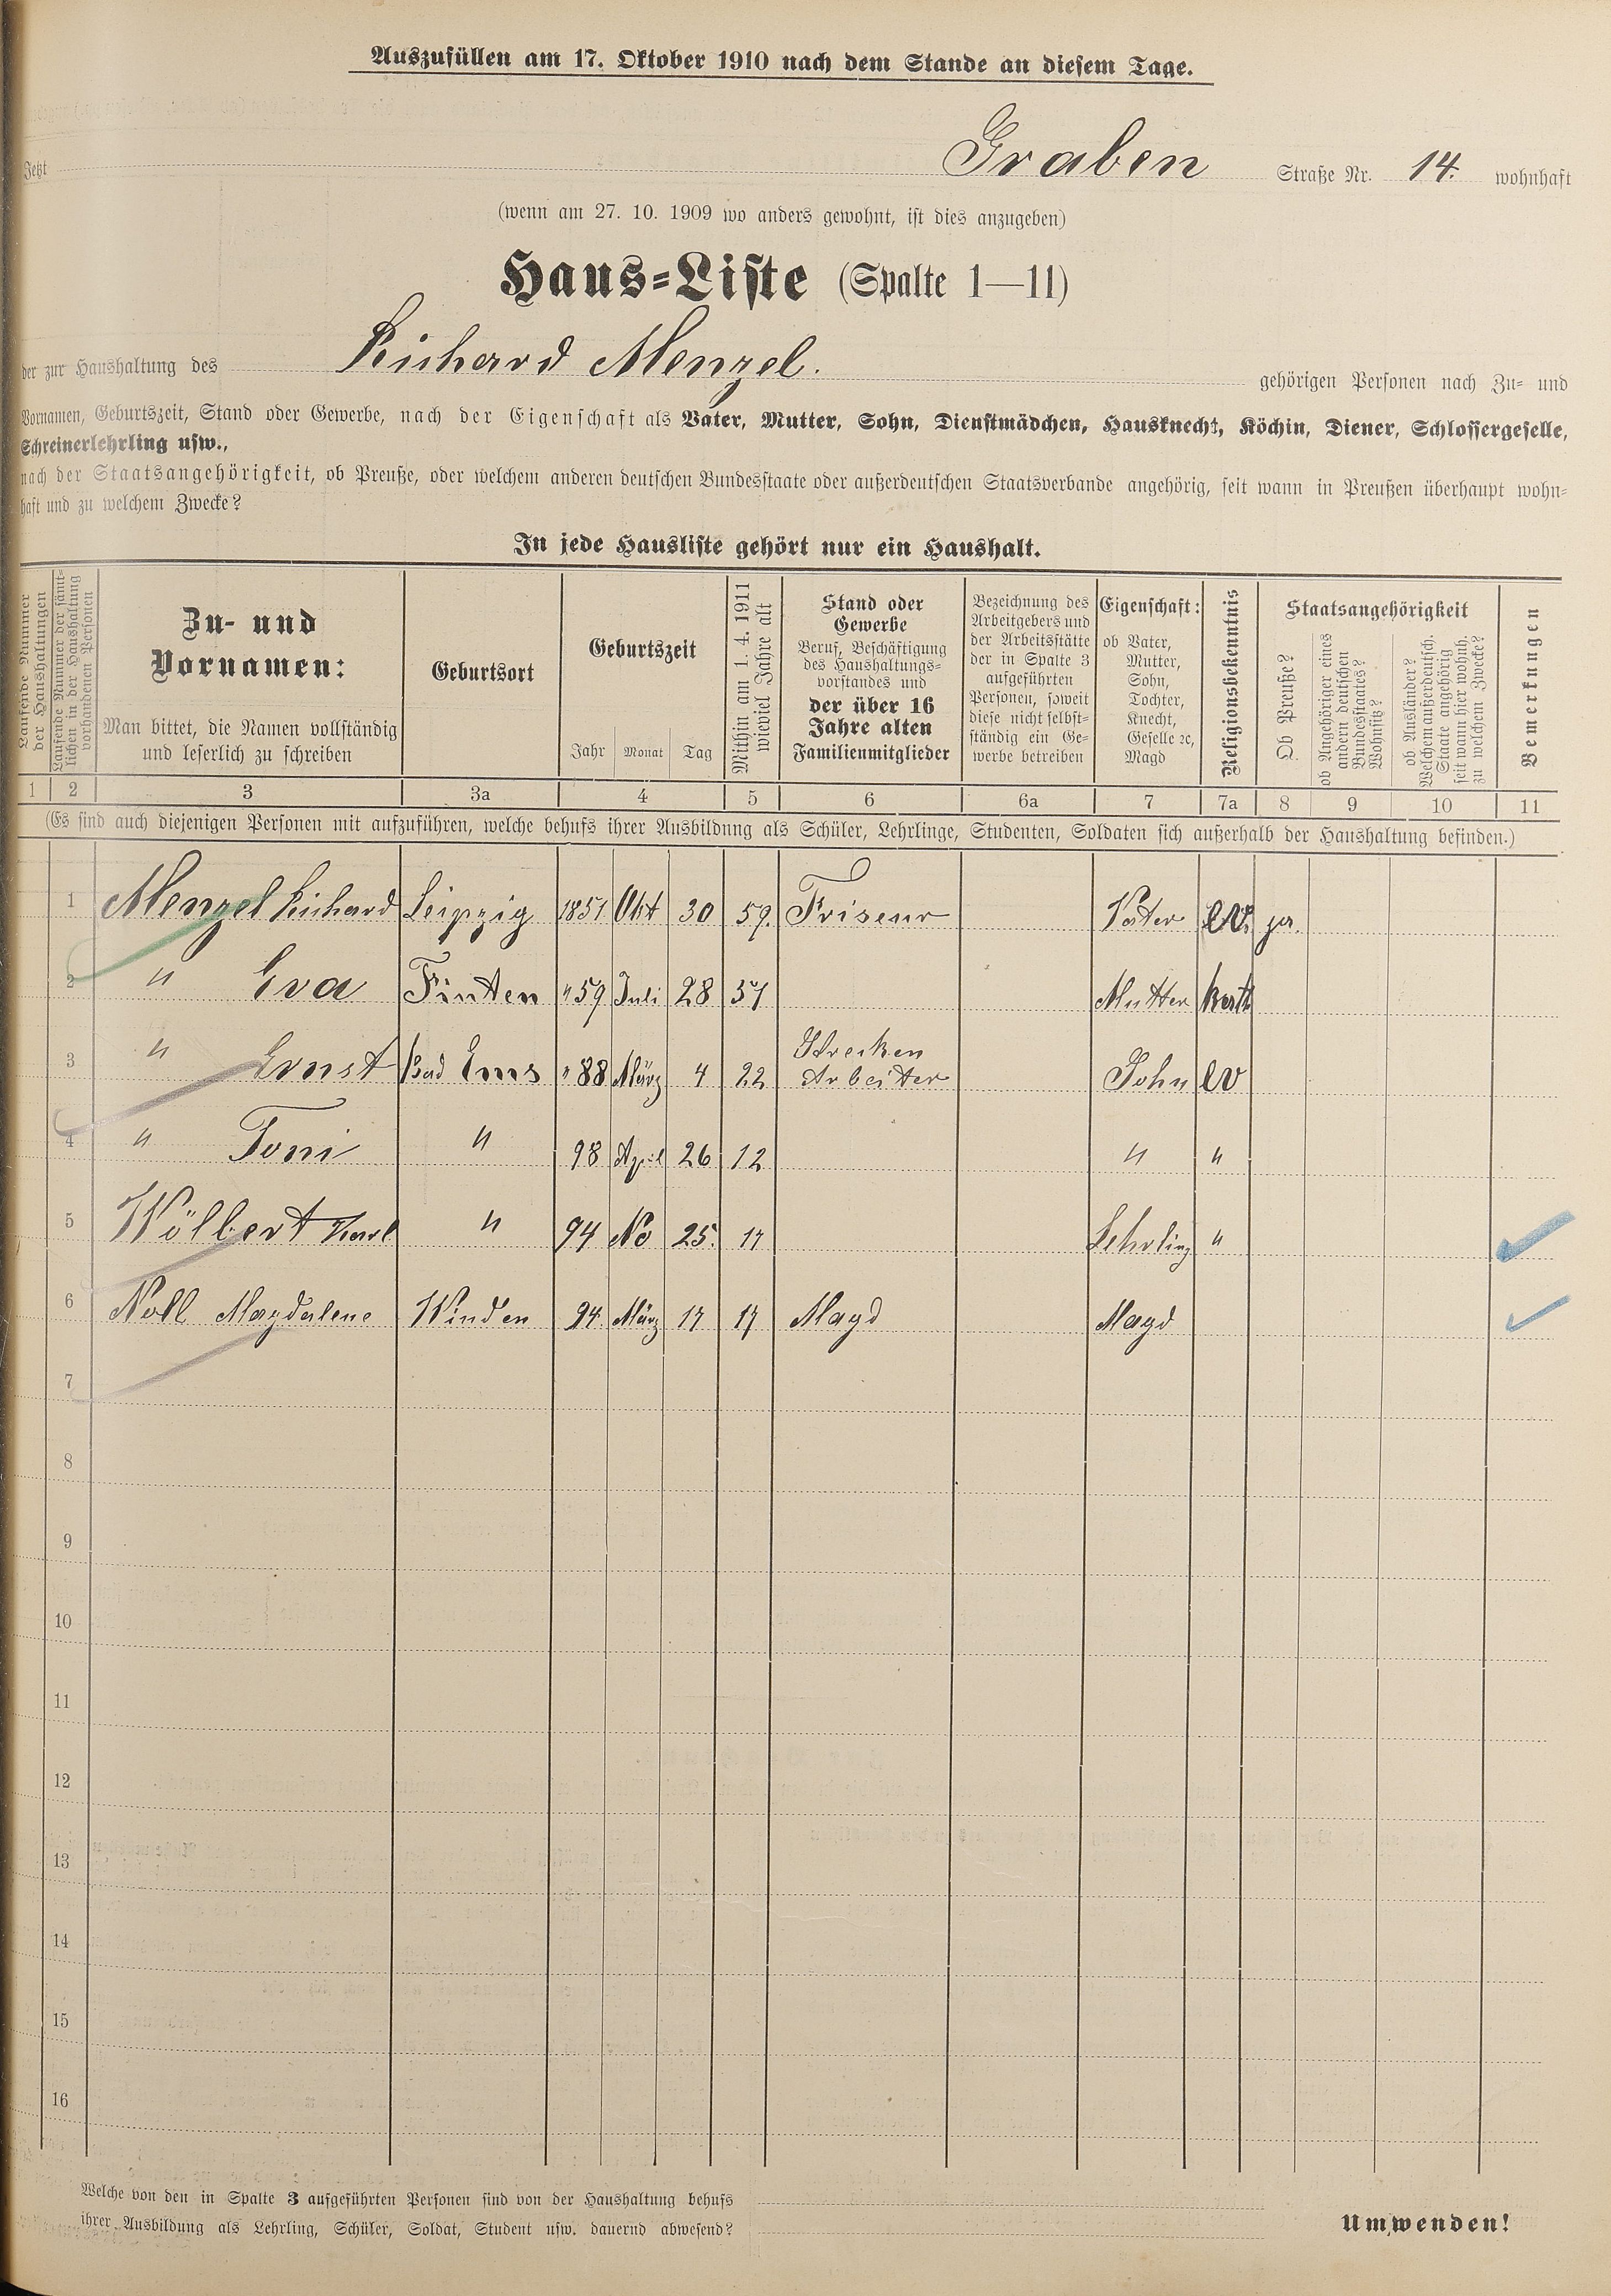 Auszufüllen am 17. Oktober 1910 nach dem Stande an diesem Tage.
Jetzt Graben Straße Nr. 14. wohnhaft
(wenn am 27. 10. 1909 wo anders gewohnt, ist dies anzugeben)
Haus-Liste (Spalte 1—11)
der zur Haushaltung des Richard Menzel. gehörigen Personen nach Zu- und
Vornamen, Geburtszeit, Stand oder Gewerbe, nach der Eigenschaft als Vater, Mutter, Sohn, Dienstmädchen, Hausknecht, Köchin, Diener, Schlossergeselle,
Schreinerlehrling usw.,
nach der Staatsangehörigkeit, ob Preuße, oder welchem anderen deutschen Bundesstaate oder außerdeutschen Staatsverbande angehörig, seit wann in Preußen überhaupt wohn-
haft und zu welchem Zwecke?
In jede Hausliste gehört nur ein Haushalt.
Laufende Nummer
der Haushaltungen
Laufende Nummer der sämt-
lichen in der Haushaltung
vorhandenen Personen
Zu- und
Vornamen:
Man bittet, die Namen vollständig
und leserlich zu schreiben
Geburtsort
Geburtszeit
Jahr Monat Tag
Mithin am 1. 4. 1911
wieviel Jahre alt
Stand oder
Gewerbe
Beruf, Beschäftigung
des Haushaltungs-
vorstandes und
der über 16
Jahre alten
Familienmitglieder
Bezeichnung des
Arbeitgebers und
der Arbeitsstätte
der in Spalte 3
aufgeführten
Personen, soweit
diese nicht selbst-
ständig ein Ge-
werbe betreiben
Eigenschaft:
ob Vater,
Mutter,
Sohn,
Tochter,
Knecht,
Geselle ꝛc,
Magd
Religionsbekenntnis
Staatsangehörigkeit
Ob Preuße?
ob Angehöriger eines
andern deutschen
Bundesstaates?
Wohnsitz?
ob Ausländer?
Welchem außerdeutsch.
Staate angehörig
seit wann hier wohnh.
zu welchem Zwecke?
Bemerkungen
1 2 3 3a 4 5 6 6a 7 7a 8 9 10 11
(Es sind auch diejenigen Personen mit aufzuführen, welche behufs ihrer Ausbildung als Schüler, Lehrlinge, Studenten, Soldaten sich außerhalb der Haushaltung befinden.)
1 Menzel Richard Leipzig 1851 Okt 30 59. Friseur Vater ev. ja.
2 " Eva Finten " 59 Juli 28 51 Mutter kath
3 " Ernst Bad Ems " 88 März 4 22 Strecken Arbeiter Sohn ev
4 " Toni " 98 April 26 12 " "
5 Wölbert Karl " 94 No 25. 17 Lehrling "
6 Noll Magdalene Winden 94 März 17 17 Magd Magd
7
8
9
10
11
12
13
14
15
16
Welche von den in Spalte 3 aufgeführten Personen sind von der Haushaltung behufs
ihrer Ausbildung als Lehrling, Schüler, Soldat, Student usw. dauernd abwesend?
Umwenden!